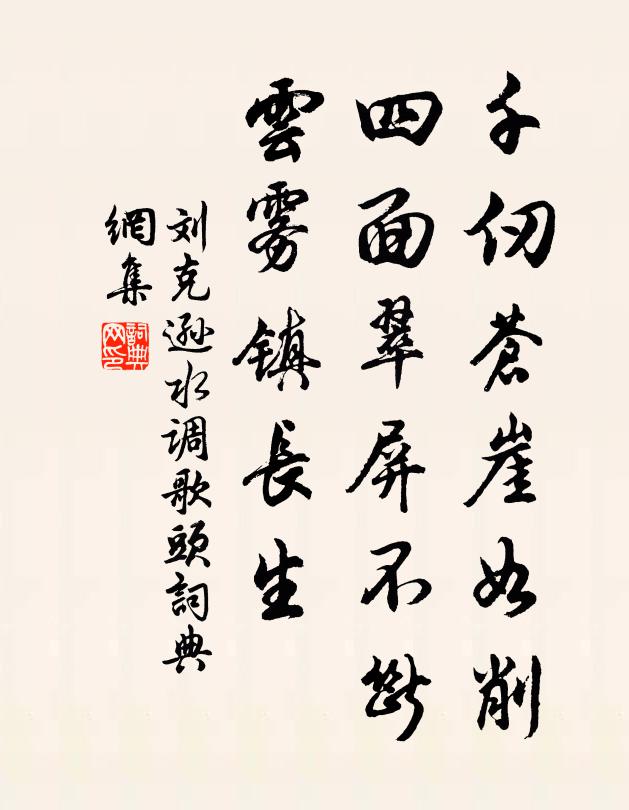 千仞蒼崖如削
四面翠屏不斷
雲霧镇長生
刘克遜水调歌頭詞典
網集
詞典
网印